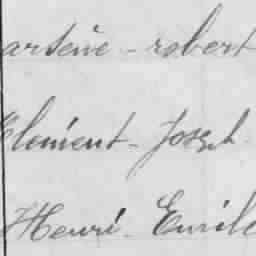 arsène - robert
Clement - Joseph
Henri - Emile